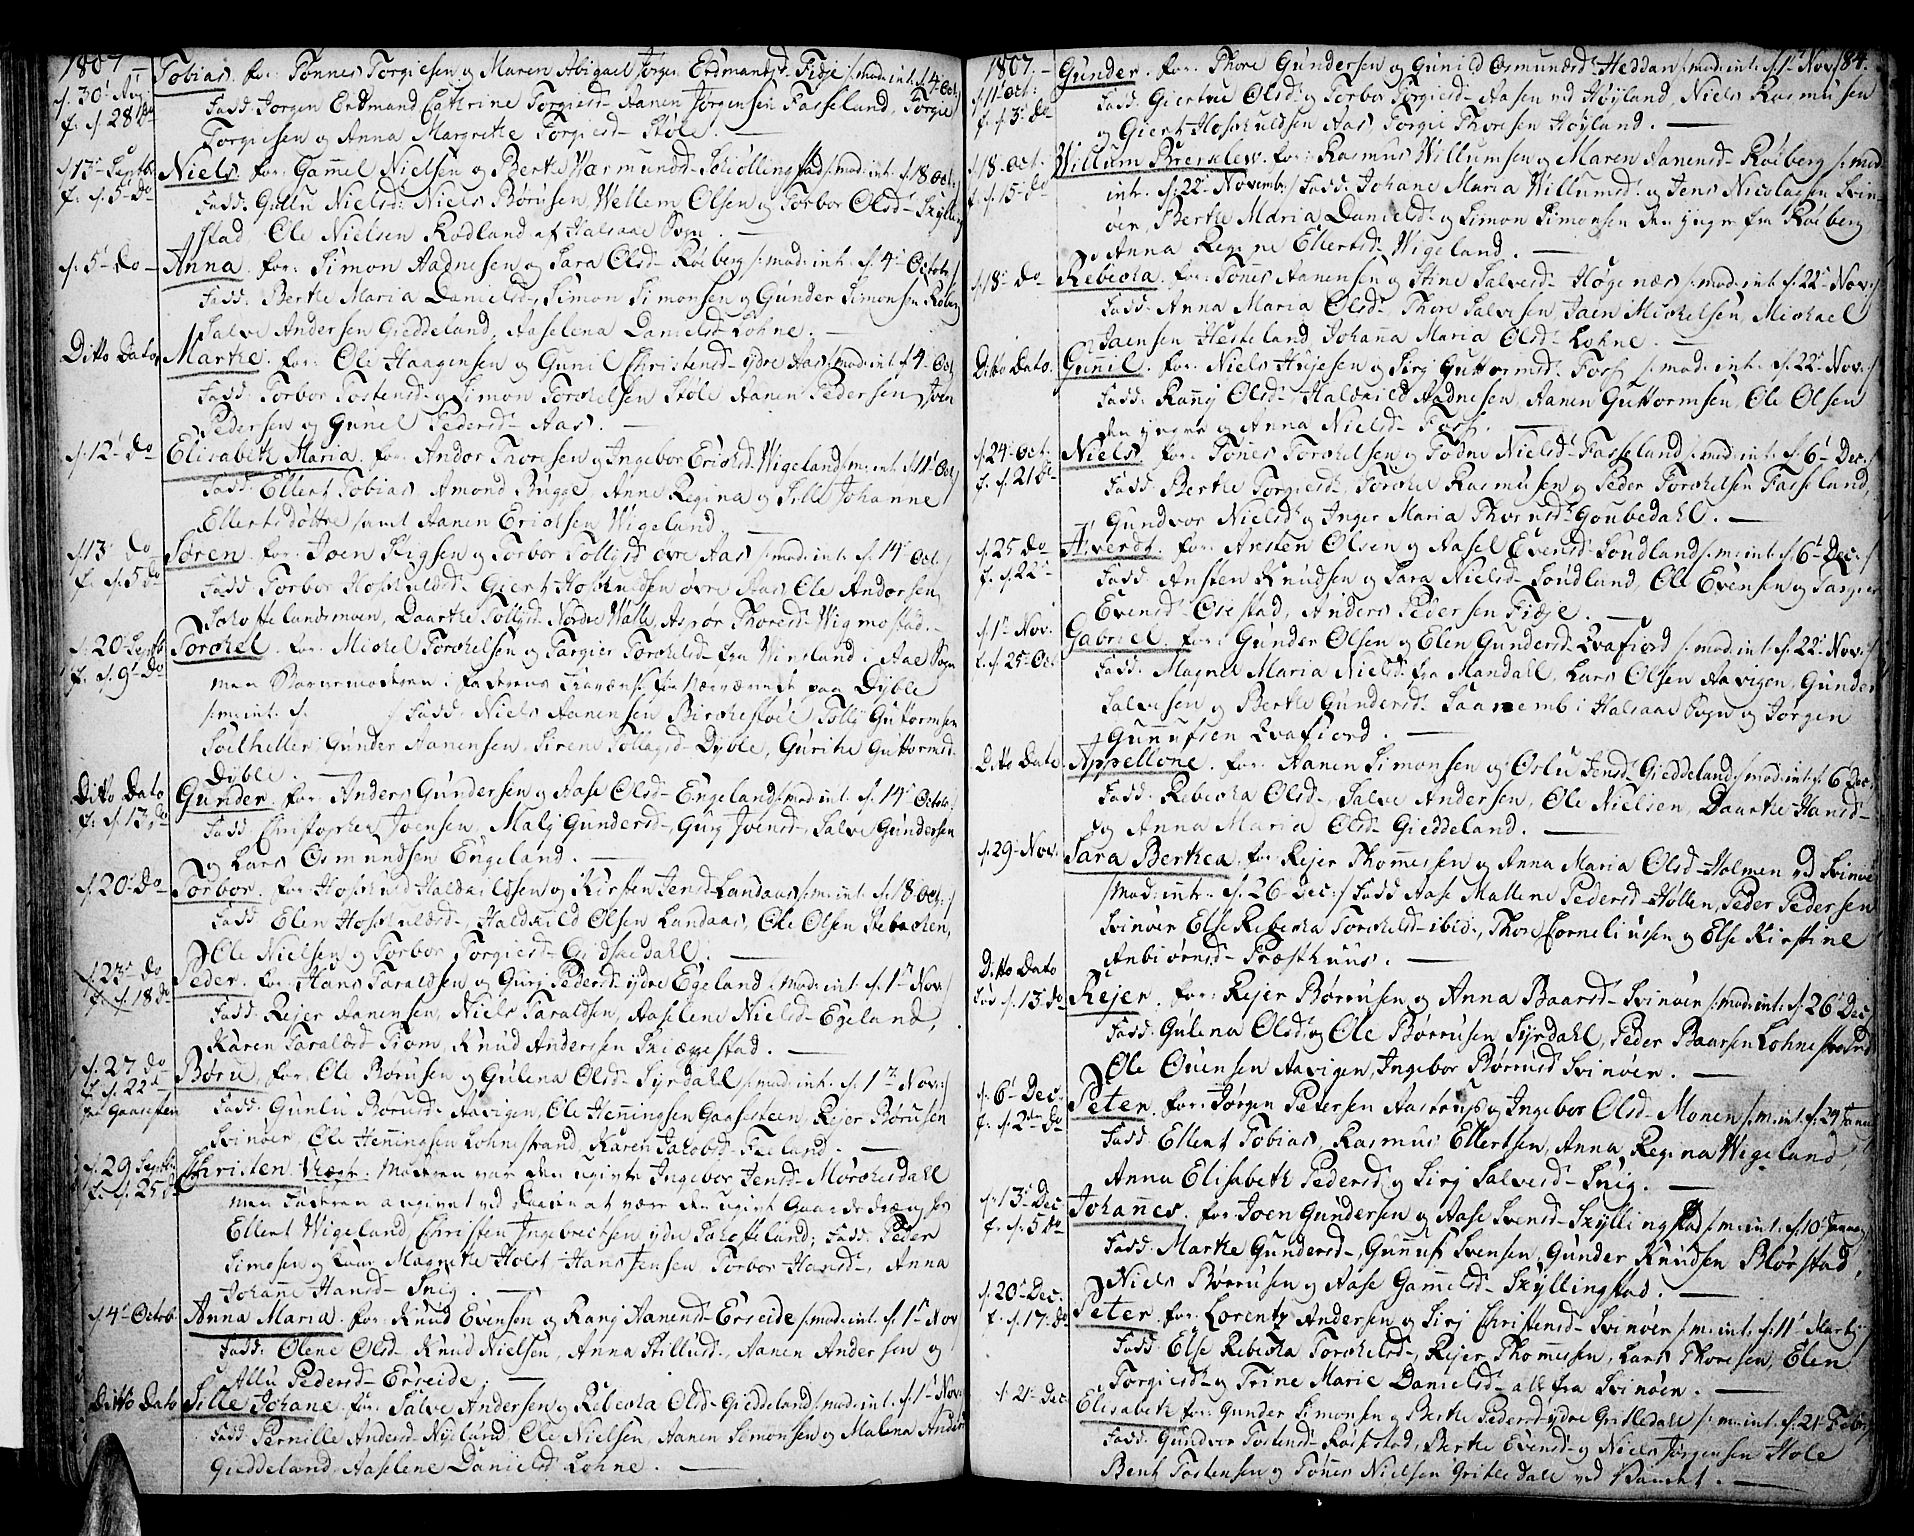 1807 –
Tobias. for: Tønnes Torgiesen og Maren Abigael Jørgen Erdmandsd. Tidje /:mod: int: d. 4. Oct:/
d. 30. Aug:
f. d. 28 do
Fadd: Jørgen Erdmand, Cathrine Torgiesd– Aanen Jørgensen Fasseland, Torgie
Torgiesen og Anna Margrethe Torgiesd– Støle. —
d. 13. Septb:
f. d. 5. do
Niels. for: Gamel Nielsen og Berthe Warmundsd– Schiøllingstad /:mod: int: d. 18 Oct:/
Fadd: Gullu Nielsd: Niels Børusen Wellem Olsen og Torbor Olsd– Skylling
stad Ole Nielsen Rodland af Halsaae Sogn. —
d. 5. do –
Anna. for: Simon Aadnesen og Sara Olsd– Roeberg /:mod: int: d. 4. Octob:/
Fadd: Berthe Maria Danielsd, Simon Simonsen og Gunder Simonsen Roberg
Salve Andersen Gieddeland, Aaselena Danielsd Lohne. —
Ditto Dato
Marthe. for: Ole Haagensen og Gunil Christensd– ydre Aas /:mod: int: d. 4. Oct
Fadd: Torbor Tostensd– og Simon Torchelsen Støle Aanen Pedersen, Sven
Pedersen og Gunel Pedersd– Aas. —
d. 12. do
Elisabeth Maria. for: Andor Thoresen og Ingebor Erichsd. Wigeland /:m: int. d. 11. Oct:/
Fadd: Ellert Tobias, Amond Bugge, Anne Regina og Sille Johanne
Ellertsdøttre samt Aanen Erichsen Wigeland. —
d. 13. do
f. d. 5. do
Søren. for: Joen Stigsen og Torbor Tollisd øvre Aas /:mod: int: d. 14. Oct:/
Fadd: Torbor Hoskuldsd– Giert Hoskuldsen øvre Aas Ole Andersen
Scholtelandsmoen, Daarthe Tollisd– Nordre Walle, Asrør Thoresd– Wigmostad. –
d. 20. Septb
f. d. 9. do
Torchel. for: Michel Torchelsen og Targier Torchelsd– fra Winsland i Aae Sogn
men Barnemoderen i Faderens Fravær for nærværende paa Dyble
/:m: int: d. :/ Fadd: Niels Aanensen Birchestøel Tolly Guttormsen
Soelheller Gunder Aanensen, Sirene Tollagsd– Dyble, Guriche Guttormsd–
Dyble. —
Ditto Dato
f. d. 13. do
Gunder. for: Anders Gundersen og Aase Olsd– Engeland /:mod: int: d. 14. Octob:/
Fadd: Christopher Joensen, Malj Gundersd–, Gurj Joensd–, Salve Gundersen
og Lars Osmundsen Engeland. —
d. 20. do
Torbor. for: Hoskuld Haldxildsen og Kirsten Jensd– Landaas /:m: int: d. 18. Oct:/
Fadd: Elen Hoskuldsd–, Haldxild Olsen Landaas, Ole Olsen Rebachen,
Ole Nielsen og Torbor Torgiesd– Eidsaedahl. —
d. 23. do
f. d. 18. do
Peder. for: Hans Taraldsen og Gurj Pedersd– ydre Egeland /:mod: int: d. 1. Nov:/
Fadd: Rejer Aanensen, Niels Taraldsen, Aaselene Nielsd– Egeland,
Karen Taraldsd– Tiom, Knud Andersen Skiæggestad. —
d. 27 do
f. d. 22. do
paa Gaasesten
Børu. for: Ole Børusen og Gulena Olsd– Syrdahl /:mod: int: d. 1. Nov:/
Fadd: Gunlu Børusd– Aavigen, Ole Henningsen Gaasesteen, Rejer Børusen
Svinøer, Ole Henningsen Lohnestrand, Karen Jacobsd– Faland. —
d. 29 Septb:
f. d. 25. do
Christen. Uægte. Moderen var den ugivte Ingebor Jensd– Mørchesdahl
men Faderen angivet ved Daaben at være den ugivt Gaardsdræng hos
Ellert Wigeland Christen Ingebrectsen ydre Scholteland; Fadd: Peder
Simonsen og Kone Magrethe Holst Hans Jensen Torbor Hansd–, Anna
Johane Hansd– Snig. —
d. 4. Octob
Anna Maria. for: Knud Evensen og Ranj Aanensd– Erseide /:mod: int: d. 1. Nov:/
Fadd: Olene Olsd– Knud Nielsen, Anna Stillusd–, Aanen Andersen og
Allu Pedersd– Erseide. —
Ditto Dato
Sille Johane. for: Salve Andersen og Rebecka Olsd– Gieddeland /:mod: int: d. 1. Nov:
Fadd: Pernille Andersd– Nyelund Ole Nielsen, Aanen Simonsen og Malena Anders
Gieddeland Aaselene Danielsd– Lohne. —
1807. – 184.
d. 11. Oct:
f. d. 3. do
Gunder. for: Thore Gundersen og Gunild Osmundsd– Heddan /:mod: int: d. 1. Nov:
Fadd: Giertrue Olsd– og Torbor Torgiesd– Aasen ved Høyland, Niels Rasmusen
og Giert Hoskuldsen Aas Torgie Thoresen Høyland. —
d. 18. Oct.
f. d. 15. do
Willum Breiselew. for: Rasmus Willumsen og Maren Aanensd– Roeberg /:mod
int: d. 22. Novemb:/ Fadd: Johane Maria Willumsd– og Jens Nicolaysen Svin-
øer, Berthe Maria Danielsd– og Simon Simonsen den yngre fra Roeberg
og Anna Regine Ellertsd– Wigeland. —
d. 18. do
Rebecka. for: Tønes Aanensen og Stine Salvesd– Høgenæs /:mod: int: d. 22. Nov:/
Fadd: Anna Maria Olsd–, Thore Salvesen, Jaen Michelsen, Michael
Jaensen Hesteland Johana Maria Olsd– Lohne. —
Ditto Dato.
Gunnil. for: Niels Hujesen og Sirj Guttormsd– Foss /:mod: int: d. 22. Nov:/
Fadd: Ranj Olsd– Haldxild Aadnesen, Aanen Guttormsen, Ole Olsen
den yngre og Anna Nielsd– Foss. —
d. 24. Oct.
f. d. 21 do
Niels. for: Tønes Torchelsen og Todne Nielsd– Fasseland /:mod: int: d. 6. Dec:/
Fadd: Berthe Torgiesd–, Torchel Rasmusen og Peder Torchelsen Fasseland,
Gundvor Nielsd– og Inger Maria Thorsd– Goubedahl. —
d. 25 do
f. d. 22.
Sivert. for: Ansten Olsen og Aasel Evensd– Soudland /:m: int: d. 6. Dec:/
Fadd: Ansten Knudsen og Sara Nielsd– Soudland, Ole Evensen og Targier
Evensd– Ousestad, Anders Pedersen Tidje. —
d. 1. Nov.
f. d. 25. Oct
Gabriel. for: Gunder Olsen og Elen Gundersd– Evafiord /:mod: int: d. 22. Nov:/
Fadd: Magna Maria Nielsd– fra Mandall, Lars Olsen Aavigen, Gunder
Salvesen og Berthe Gundersd– Saanemb i Halsaae Sogn og Jørgen
Gunnufsen Evafiord. —
Ditto Dato.
Appellone. for: Aanen Simonsen og Oslu Jensd– Gieddeland /:mod: int: d. 6. Dec.
Fadd: Rebecka Olsd–, Salve Andersen, Ole Nielsen, Daarthe Hansd–
og Anna Maria Olsd– Gieddeland. —
d. 29. Nov.
Sara Berthea. for: Rejer Thommesen og Anna Maria Olsd– Holmen ved Svinøer
/:mod: int: d. 26. Dec:/ Fadd: Aase Mallene Pedersd– Hollen, Peder Pedersen
Svinøer Else Rebecka Torchelsd– ibid:, Thore Corneliusen og Else Kirstine
Anbiørnsd– Præsthuus. —
Ditto Dato
fød d. 13. do
Rejer. for: Rejer Børrusen og Anna Baarsd– Svinøer /:mod: int: d. 26. Dec
Fadd: Gulena Olsd– og Ole Børrusen Syrdahl, Peder Baarsen Lohnestrand
Ole Ouensen Aavigen, Ingebor Børrusd– Svinøer. —
d. 6. Dec.
f. d. 2. do
Peter. for: Jørgen Petersen Aastrus og Ingebor Olsd– Monen /:m: int: d. 24 Janua
Fadd: Ellert Tobias, Rasmus Ellertsen, Anna Regina Wigeland,
Anna Elisabeth Pedersd– og Sirj Salvesd– Snig. —
d. 13. Dec
f. d. 5. do
Johannes. for: Joen Gundersen og Aase Svensd– Skyllingstad /:m: int: d. 10. Januarj
Fadd: Marthe Gundersd–, Gunuf Svensen, Gunder Knudsen Blørstad,
Niels Børrusen og Aase Gammelsd– Skyllingstad. —
d. 20. Dec.
f. d. 17. do
Peter. for: Lorentz Andersen og Sirj Christensd– Svinøer /:m: int: d. 11. Martij
Fadd: Else Rebecka Torchelsd–, Rejer Thommesen, Lars Thoresen, Elen
Torgiesd– og Trine Marie Danielsd– all fra Svinøer. —
d. 21. Dec
Elisabeth. for: Gunder Simonsen og Berthe Pedersd– ydre Gritledahl /:m: int: d. 21. Febr:/
Fadd: Gundvor Tostensd– Roskestad, Berthe Evensd– og Niels Jørgensen Hole
Bent Tostensen og Tønnes Nielsen Gritledall ved Vandet. —